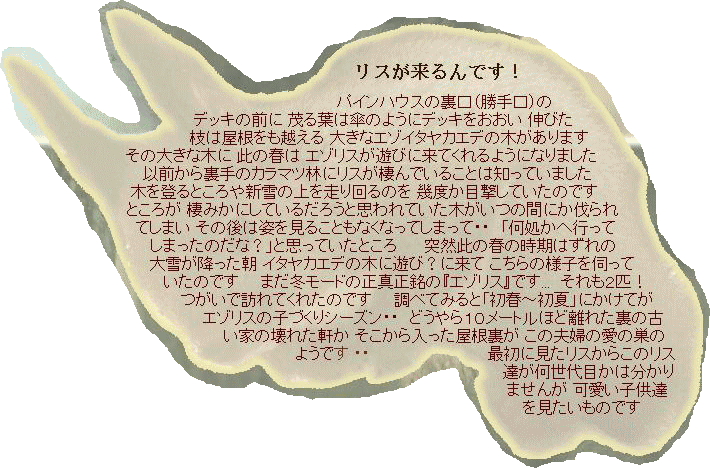 リスが来るんです！
パインハウスの裏口（勝手口）の
デッキの前に 茂る葉は傘のようにデッキをおおい 伸びた
枝は屋根をも越える 大きなエゾイタヤカエデの木があります
その大きな木に 此の春は エゾリスが遊びに来てくれるようになりました
以前から裏手のカラマツ林にリスが棲んでいることは知っていました
木を登るところや新雪の上を走り回るのを 幾度か目撃していたのです
ところが 棲みかにしているだろうと思われていた木がいつの間にか伐られ
てしまい その後は姿を見ることもなくなってしまって・・ 「何処かへ行って
しまったのだな？」と思っていたところ 突然此の春の時期はずれの
大雪が降った朝 イタヤカエデの木に遊び？に来て こちらの様子を伺って
いたのです まだ冬モードの正真正銘の『エゾリス』です... それも2匹！
つがいで訪れてくれたのです 調べてみると「初春～初夏」にかけてが
エゾリスの子づくりシーズン・・ どうやら１０メートルほど離れた裏の古
い家の壊れた軒か そこから入った屋根裏が この夫婦の愛の巣の
ようです ・・ 最初に見たリスからこのリス
達が何世代目かは分かり
ませんが 可愛い子供達
を見たいものです